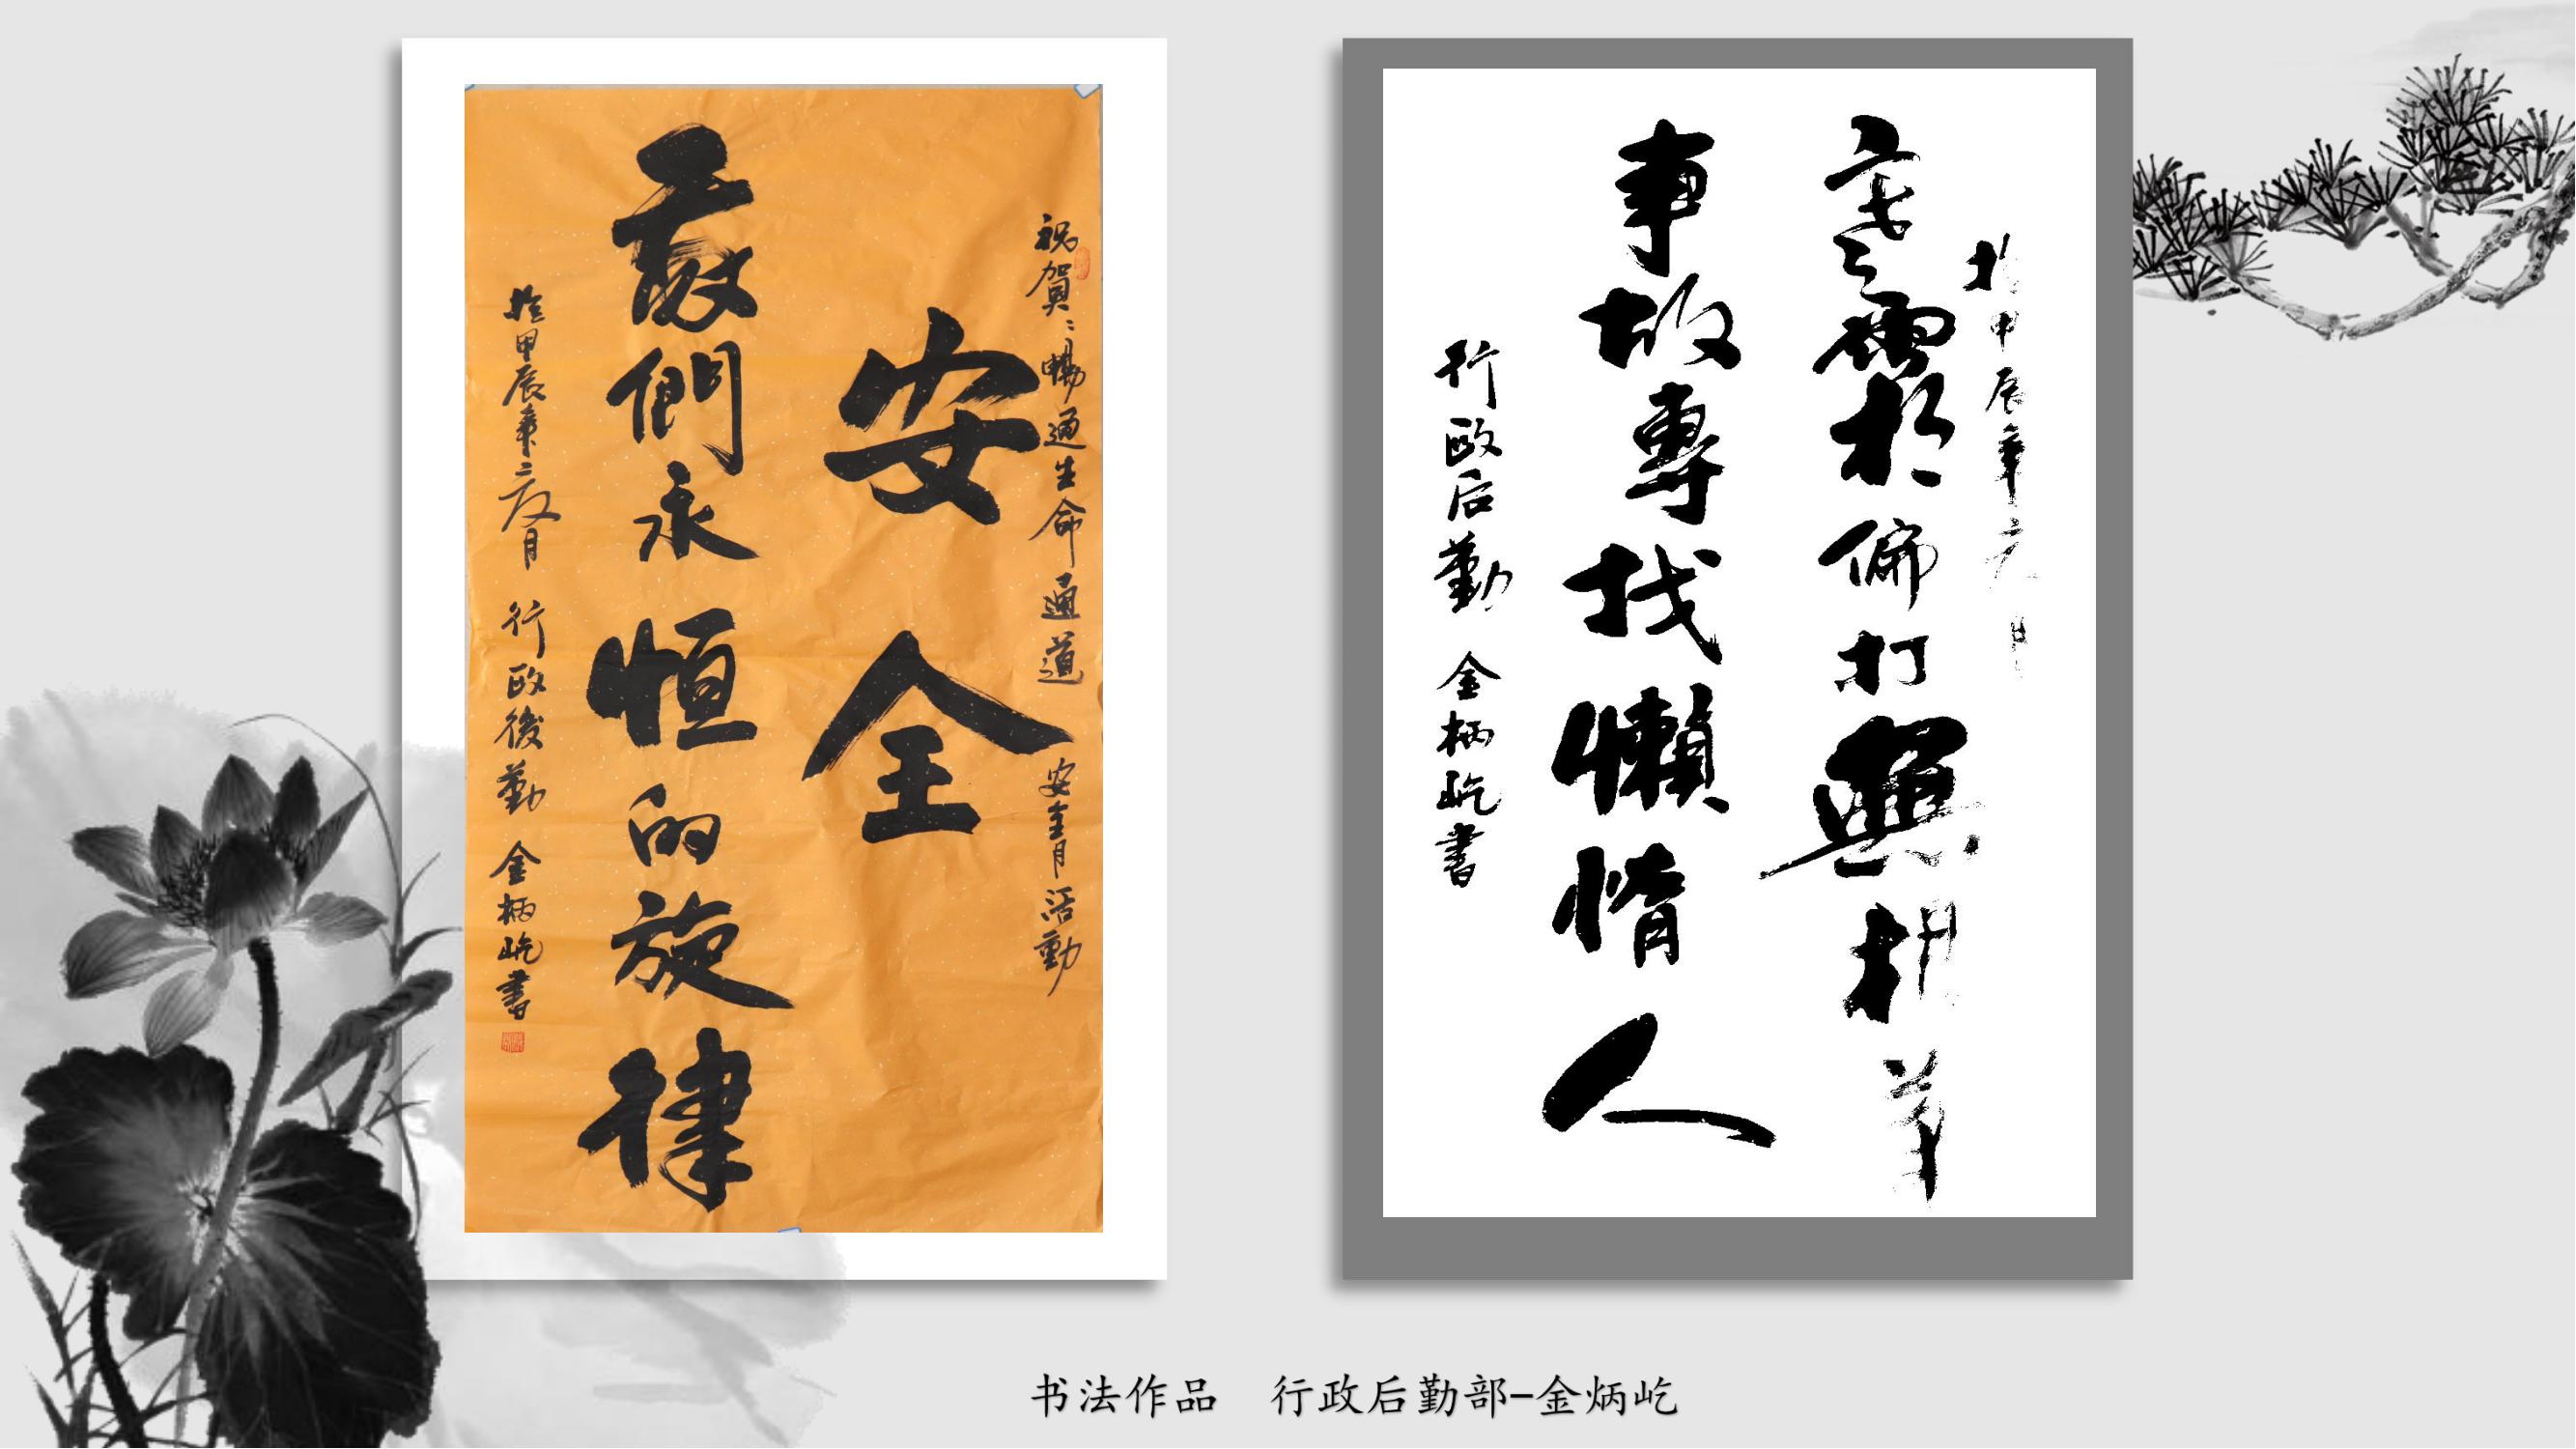 祝賀：暢通生命通道 安全月活動
安全
們永恒的旋律
於甲辰年六月 行政後勤 金柄屹書
於甲辰年六月
寒霜偏打無根草
事故專找懶惰人
行政后勤 金柄屹書
书法作品 行政后勤部-金炳屹